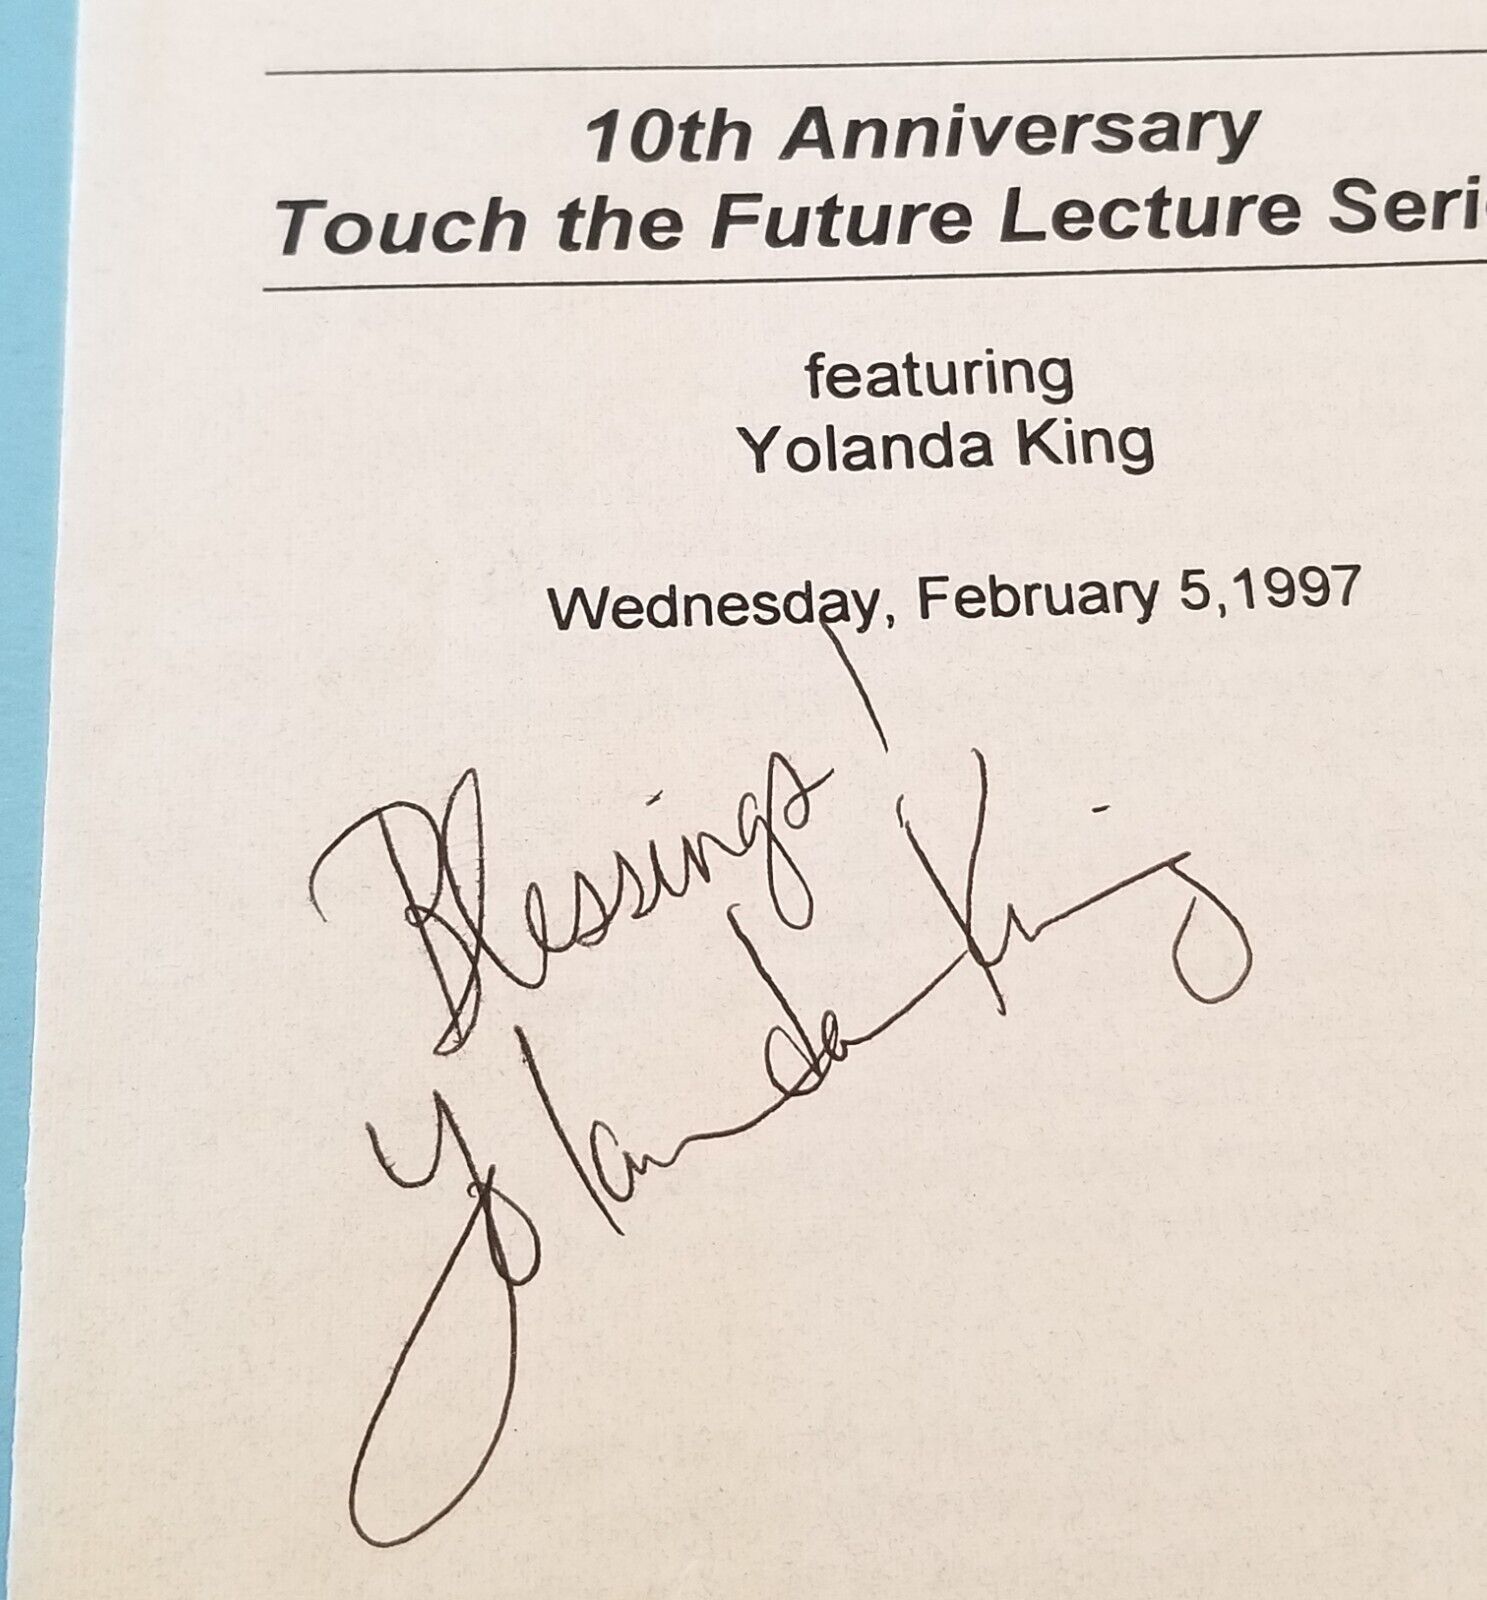 10th Anniversary
Touch the Future Lecture Seri
featuring
Yolanda King
Wednesday, February 5,1997
Blessings!
Yolanda King